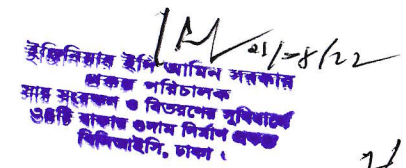 ২১/০৮/২২
ইঞ্জিনিয়ার ইসি আমিন সরকার
প্রকল্প পরিচালক
সার সংরক্ষণ ও বিতরণের সুবিধার্থে
৩৪টি বাফার গুদাম নির্মাণ প্রকল্প
বিসিআইসি, ঢাকা।